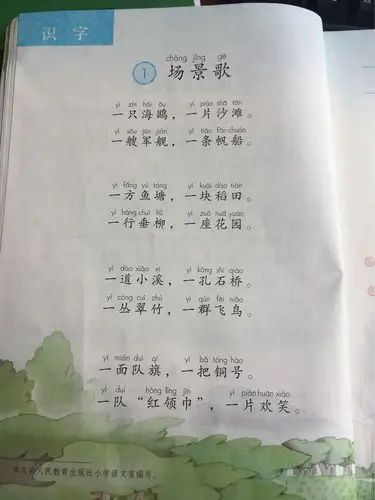 识字
chǎng jǐng gē
1 场景歌
yì zhī hǎi ōu yí piàn shā tān
一只海鸥，一片沙滩。
yì sōu jūn jiàn yì tiáo fān chuán
一艘军舰，一条帆船。
yì fāng yú táng yí kuài dào tián
一方鱼塘，一块稻田。
yì háng chuí liǔ yí zuò huā yuán
一行垂柳，一座花园。
yí dào xiǎo xī yì kǒng shí qiáo
一道小溪，一孔石桥。
yì cóng cuì zhú yì qún fēi niǎo
一丛翠竹，一群飞鸟。
yí miàn duì qí yì bǎ tóng hào
一面队旗，一把铜号。
yí duì hóng lǐng jīn yí piàn huān xiào
一队“红领巾”，一片欢笑。
本文由人民教育出版社小学语文室编写。